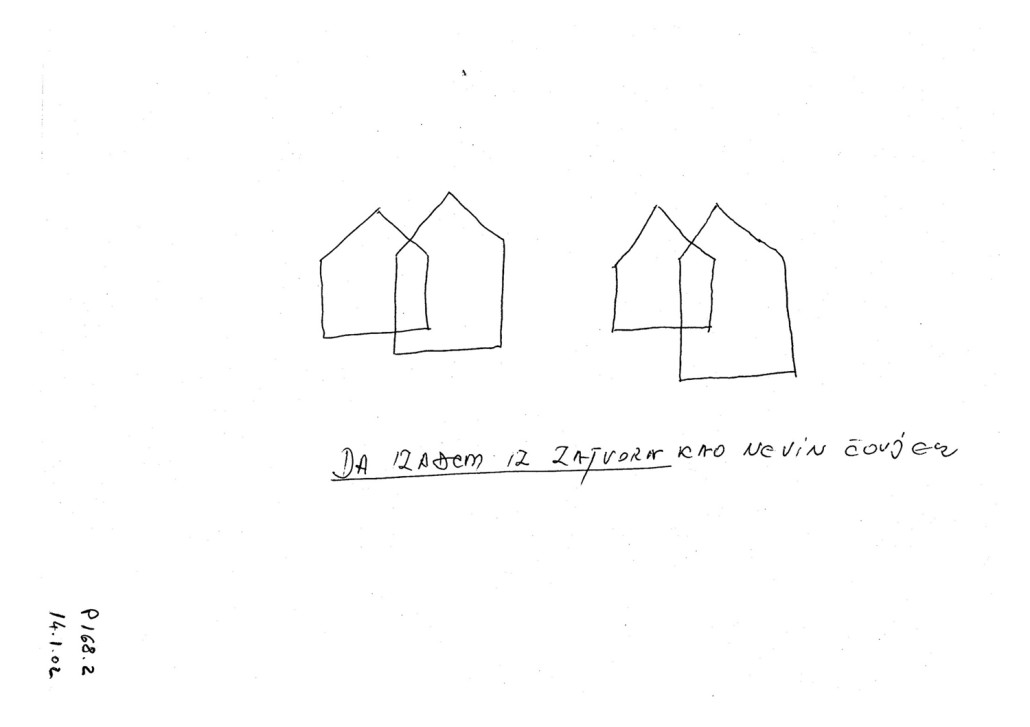 DA IZAĐEM IZ ZATVORA KAO NEVIN ČOVJEK
P168.2
14.1.02